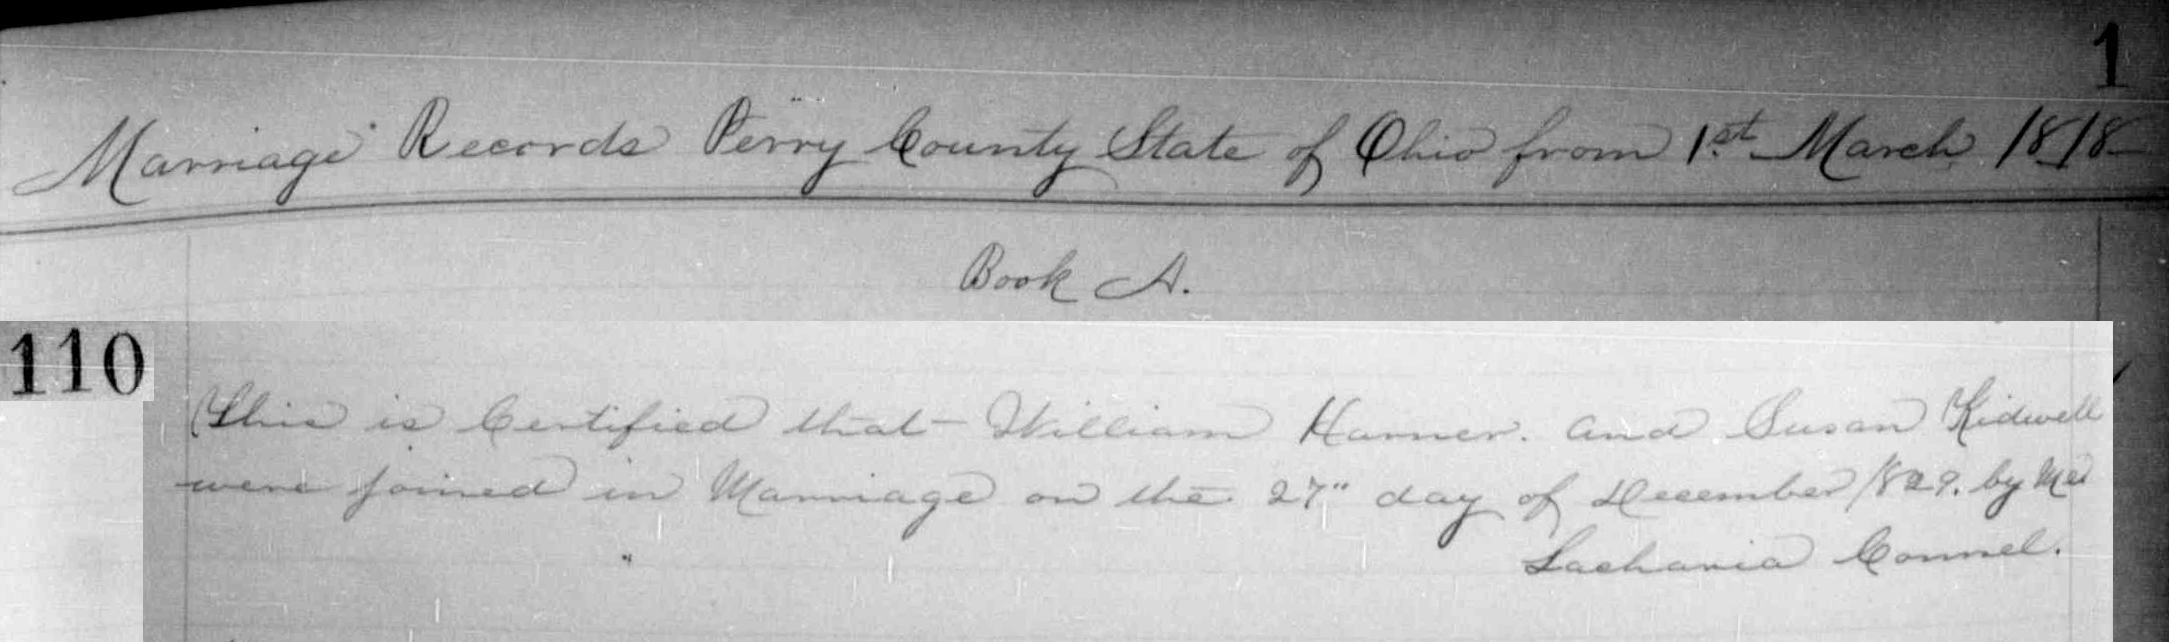 1
Marriage Records Perry County State of Ohio from 1st March 1818
Book A.
110
This is Certified that William Harner. and Susan Kidwell
were joined in Marriage on the 27" day of December 1829. by Me
Zacharia Connel.